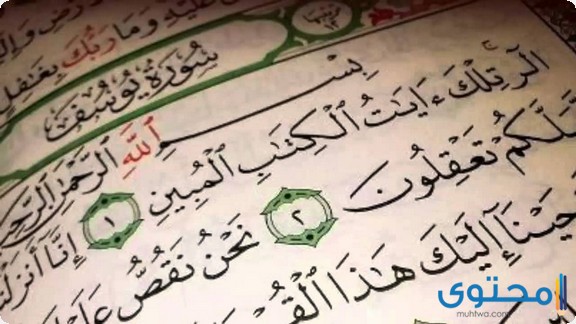 عَلَيْهِ وَمَا رَبُّكَ بِغَٰفِلٍ
سُورَةُ يُوسُفَ
بِسْمِ ٱللَّهِ ٱلرَّحْمَٰنِ
الٓر تِلْكَ ءَايَٰتُ ٱلْكِتَٰبِ ٱلْمُبِينِ ١ إِنَّآ أَنزَلْنَٰ
لَّعَلَّكُمْ تَعْقِلُونَ ٢ نَحْنُ نَقُصُّ عَلَيْ
أَوْحَيْنَآ إِلَيْكَ هَٰذَا ٱلْقُرْ
محتوى
muhtwa.com